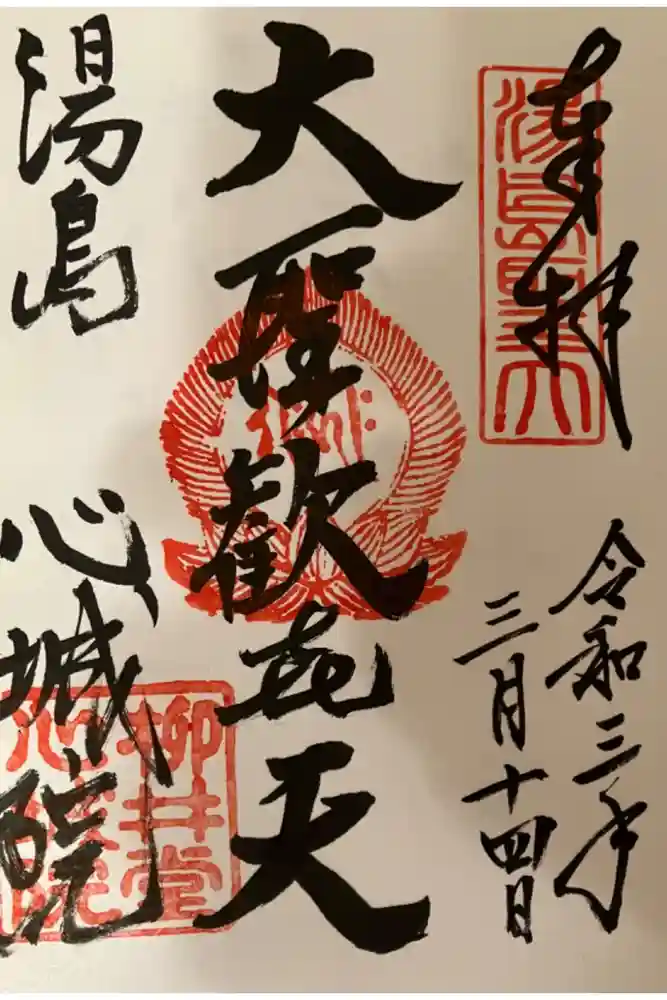 奉拝
令和三年
三月十四日
大聖歓喜天
湯島 心城院
湯島聖天
柳井堂
心城院